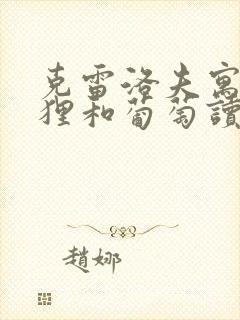 克雷洛夫寓
狸和葡萄讀
趙娜